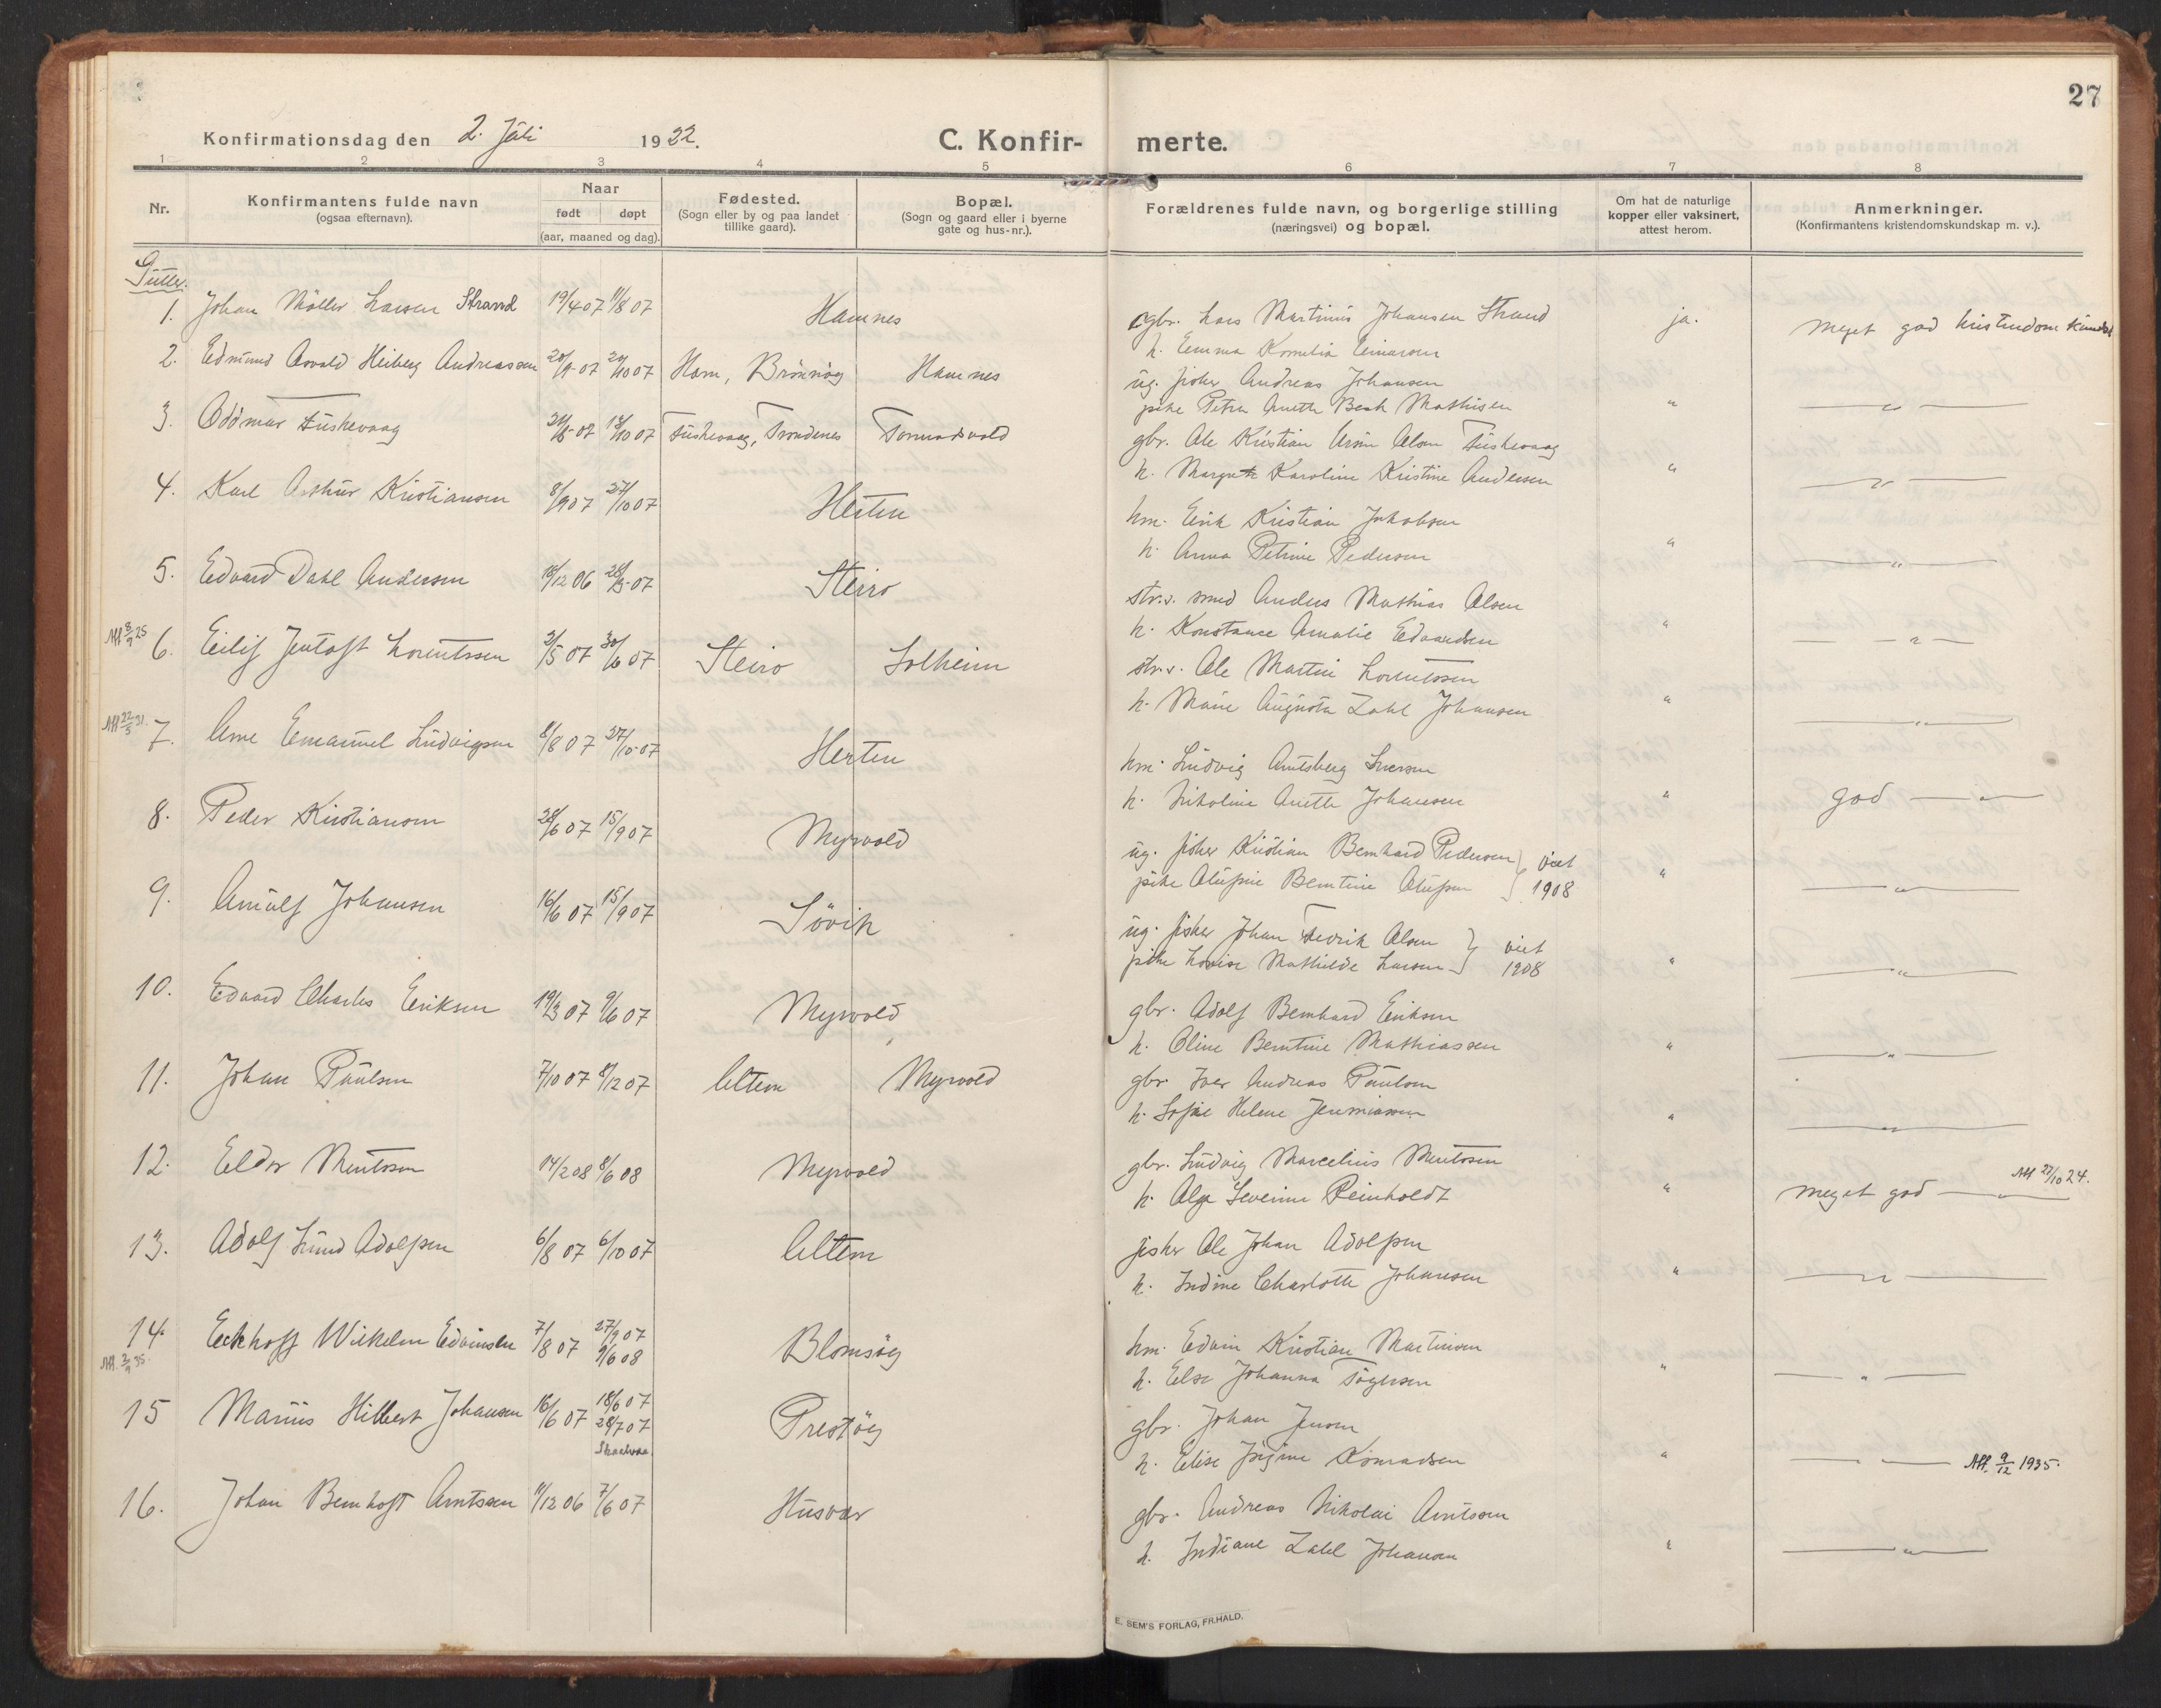 27
Konfirmationsdag den 2. Juli 1922.
C. Konfir-merte.
1 2 3 4 5 6 7 8
Nr.
Konfirmantens fulde navn
(ogsaa efternavn).
Naar
født døpt
(aar, maaned og dag).
Fødested.
(Sogn eller by og paa landet
tillike gaard).
Bopæl.
(Sogn og gaard eller i byerne
gate og hus-nr.).
Forældrenes fulde navn, og borgerlige stilling
(næringsvei) og bopæl.
Om hat de naturlige
kopper eller vaksinert,
attest herom.
Anmerkninger.
(Konfirmantens kristendomskundskap m. v.).
Gutter.
1. Johan Møller Larsen Strand 19/4 07 11/8 07 Hamnes
gbr. Lars Martinus Johansen Strand ja. meget god kristendomskundsk
h. Emma Kornelia Einarsen
2. Edmund Osvald Heiberg Andreassen 20/9 07 20/10 07 Horn, Brønnøy Hamnes
ug. fisker Andreas Johansen
pike Petra Anette Beck Mathisen " — " —
3. Oddmar Fuskevaag 21/5 07 13/10 07 Fuskevaag, Trondenes Tormodsvold
gbr. Ole Kristian Ursin Olsen Fuskevaag
h. Margrete Karoline Kristine Andersen " — " —
4. Karl Arthur Kristiansen 8/9 07 27/10 07 Herten
hm. Eirik Kristian Jakobsen
h. Anna Petrine Pedersen " — " —
5. Edvard Dahl Andersen 15/12 06 28/3 07 Steiro
str.s. smed Anders Mathias Olsen
h. Konstance Amalie Edvardsen " — " —
Att 3/9 25
6. Eilif Jentoft Lorentssen 3/5 07 30/6 07 Steiro Solheim
str.s. Ole Martin Lorentssen
h. Marie Augusta Zahl Johansen " — " —
Att 22/5 31.
7. Arne Emanuel Ludvigsen 8/8 07 27/10 07 Herten
hm. Ludvig Amtsberg Iversen
h. Nikoline Anette Johansen " god — " —
8. Peder Kristiansen 28/6 07 15/9 07 Myrvold
ug. fisker Kristian Bernhard Pedersen } viet
pike Olufine Berntine Olufsen } 1908 " — " —
9. Arnulf Johansen 16/6 07 15/9 07 Søvik
ug. fisker Johan Fedrik Olsen } viet
pike Lovise Mathilde Larsen } 1908 " — " —
10. Edvard Charles Eriksen 19/3 07 9/6 07 Myrvold
gbr. Adolf Bernhard Eriksen
h. Oline Berntine Mathiassen " — " —
11. Johan Paulsen 7/10 07 8/12 07 Altem Myrvold
gbr. Iver Andreas Paulsen
h. Sofie Helene Jermiassen " — " —
12. Eldor Mentssen 14/2 08 8/6 08 Myrvold
gbr. Ludvig Marcelius Mentssen
h. Olga Severine Reinholdt " meget god — " — Att 27/10 24.
13. Adolf Lund Adolfsen 6/8 07 6/10 07 Altem
fisker Ole Johan Adolfsen
h. Indine Charlotte Johansen " — " —
14. Eckhoff Wilhelm Edvinsen 7/8 07 27/9 07 9/6 08 Blomsøy
Att. 2/9 35.
hm. Edvin Kristian Martinsen
h. Else Johanna Tøgersen " — " —
15 Marius Hilbert Johansen 16/6 07 18/6 07 28/7 07 Prestøy
gbr. Johan Jensen
h. Elise Konradsen " — — Att. 9/12 1935.
16. Johan Bernhoft Arntssen 11/12 06 7/6 07 Husvær
gbr. Andreas Nikolai Arntssen
h. Indiane Zahl Johansen " — " —
E. SEM'S FORLAG, FR.HALD.